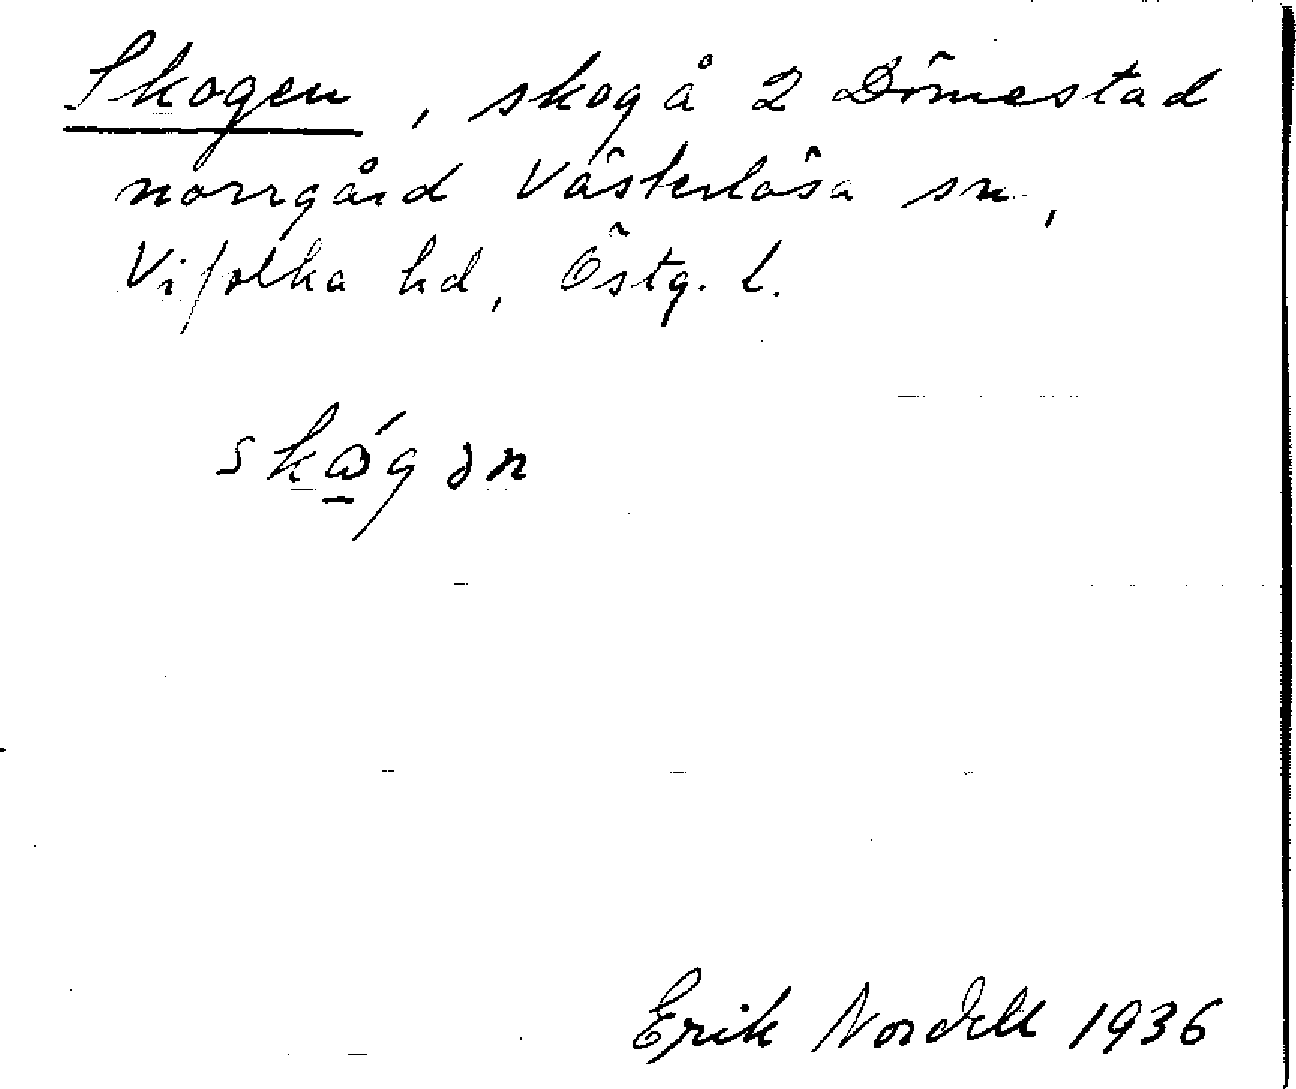 Skogen, skog å 2 Dömestad
norrgård Västerlösa sn.,
Vifolka hd, Östg. l.
skώ̱gən
Erik Nordell 1936